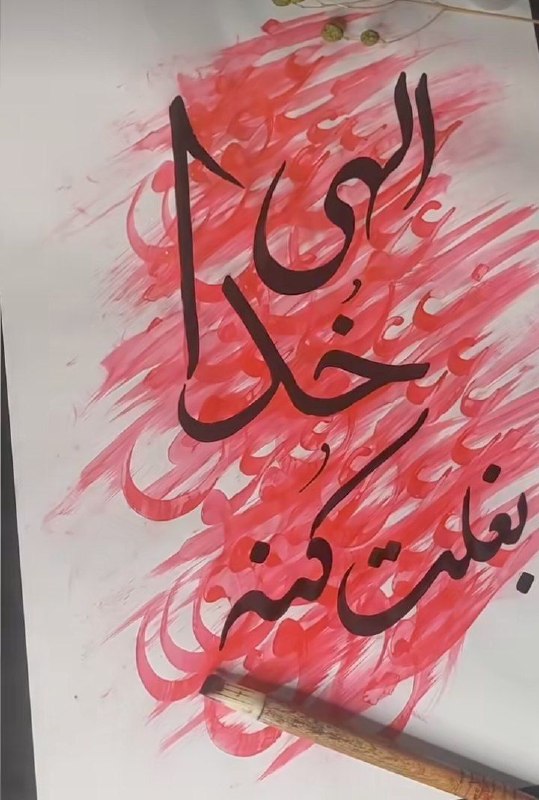 الهی
خُدا
بغلت کُنه